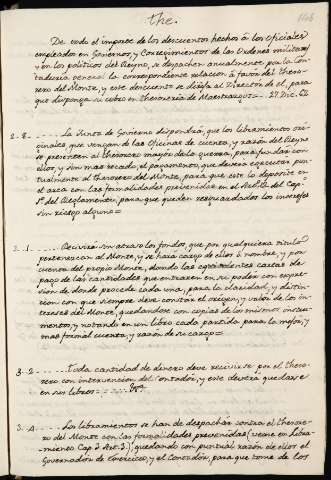 the.
De todo el importe de los descuentos hechos á los Oficiales
empleados en Goviernos, y Corregimientos de las Ordenes militares
y en los politicos del Reyno, se despachen anualmente por la Con-
taduria general la correspondiente relacion á favor del theso-
rero del Monte, y este descuento se dirija al Director de él, para
que disponga su cobro en thesoreria de Maestrazgos = 27 Dic. 62
2. 8. La Junta de Govierno dispondrá, que los libramientos ori-
ginales, que vengan de las Oficinas de cuenta, y razón del Reyno
se presenten al thesorero mayor de la guerra, para fundar con
ellos, y sin mas recado, el pagamento, que deverá executar pun-
tualmente al thesorero del Monte, para que este lo deposite en
el arca con las formalidades prevenidas en el Art.º del Cap.
1º del Reglamento, para que queden resguardados los intereses
sin riesgo alguno =
3. 1. Recivirá sin atraso los fondos, que por qualquiera titulo
pertenezcan al Monte, y se hará cargo de ellos á nombre, y por
cuenta del propio Monte, dando las equivalentes cartas de
pago de las cantidades que entraren en su poder con expre-
sion de donde procede cada una, para la claridad, y distin-
cion con que siempre deve constar el origen, y valor de los in-
tereses del Monte, quedandose con copias de los mismos instru-
mentos, y notando en un libro cada partida para la mejor, y
mas formal cuenta, y razón de su cargo =
3. 2. Toda cantidad de dinero deve recivirse por el theso-
rero con intervencion del Contador, y este deverá quedarse
en sus libros
3. 4. Los libramientos se han de despachar contra el thesore-
ro del Monte con las formalidades prevenidas (vease en Libra-
mientos Cap. 3 Art. 3.) quedando con puntual razón de ellos el
Governador de Exercicio, y el Contador, para que tome de los